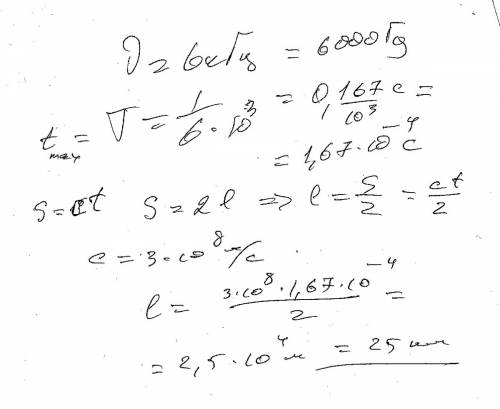 ν = 6кГц = 6000Гц
t max = T = 1/(6·10³) = 0,167/10³ c =
= 1,67·10⁻⁴ c
S=ct S=2l => l = S/2 = ct/2
c = 3·10⁸ м/с
l = (3·10⁸·1,67·10⁻⁴)/2 =
= 2,5·10⁴ м = 25 км